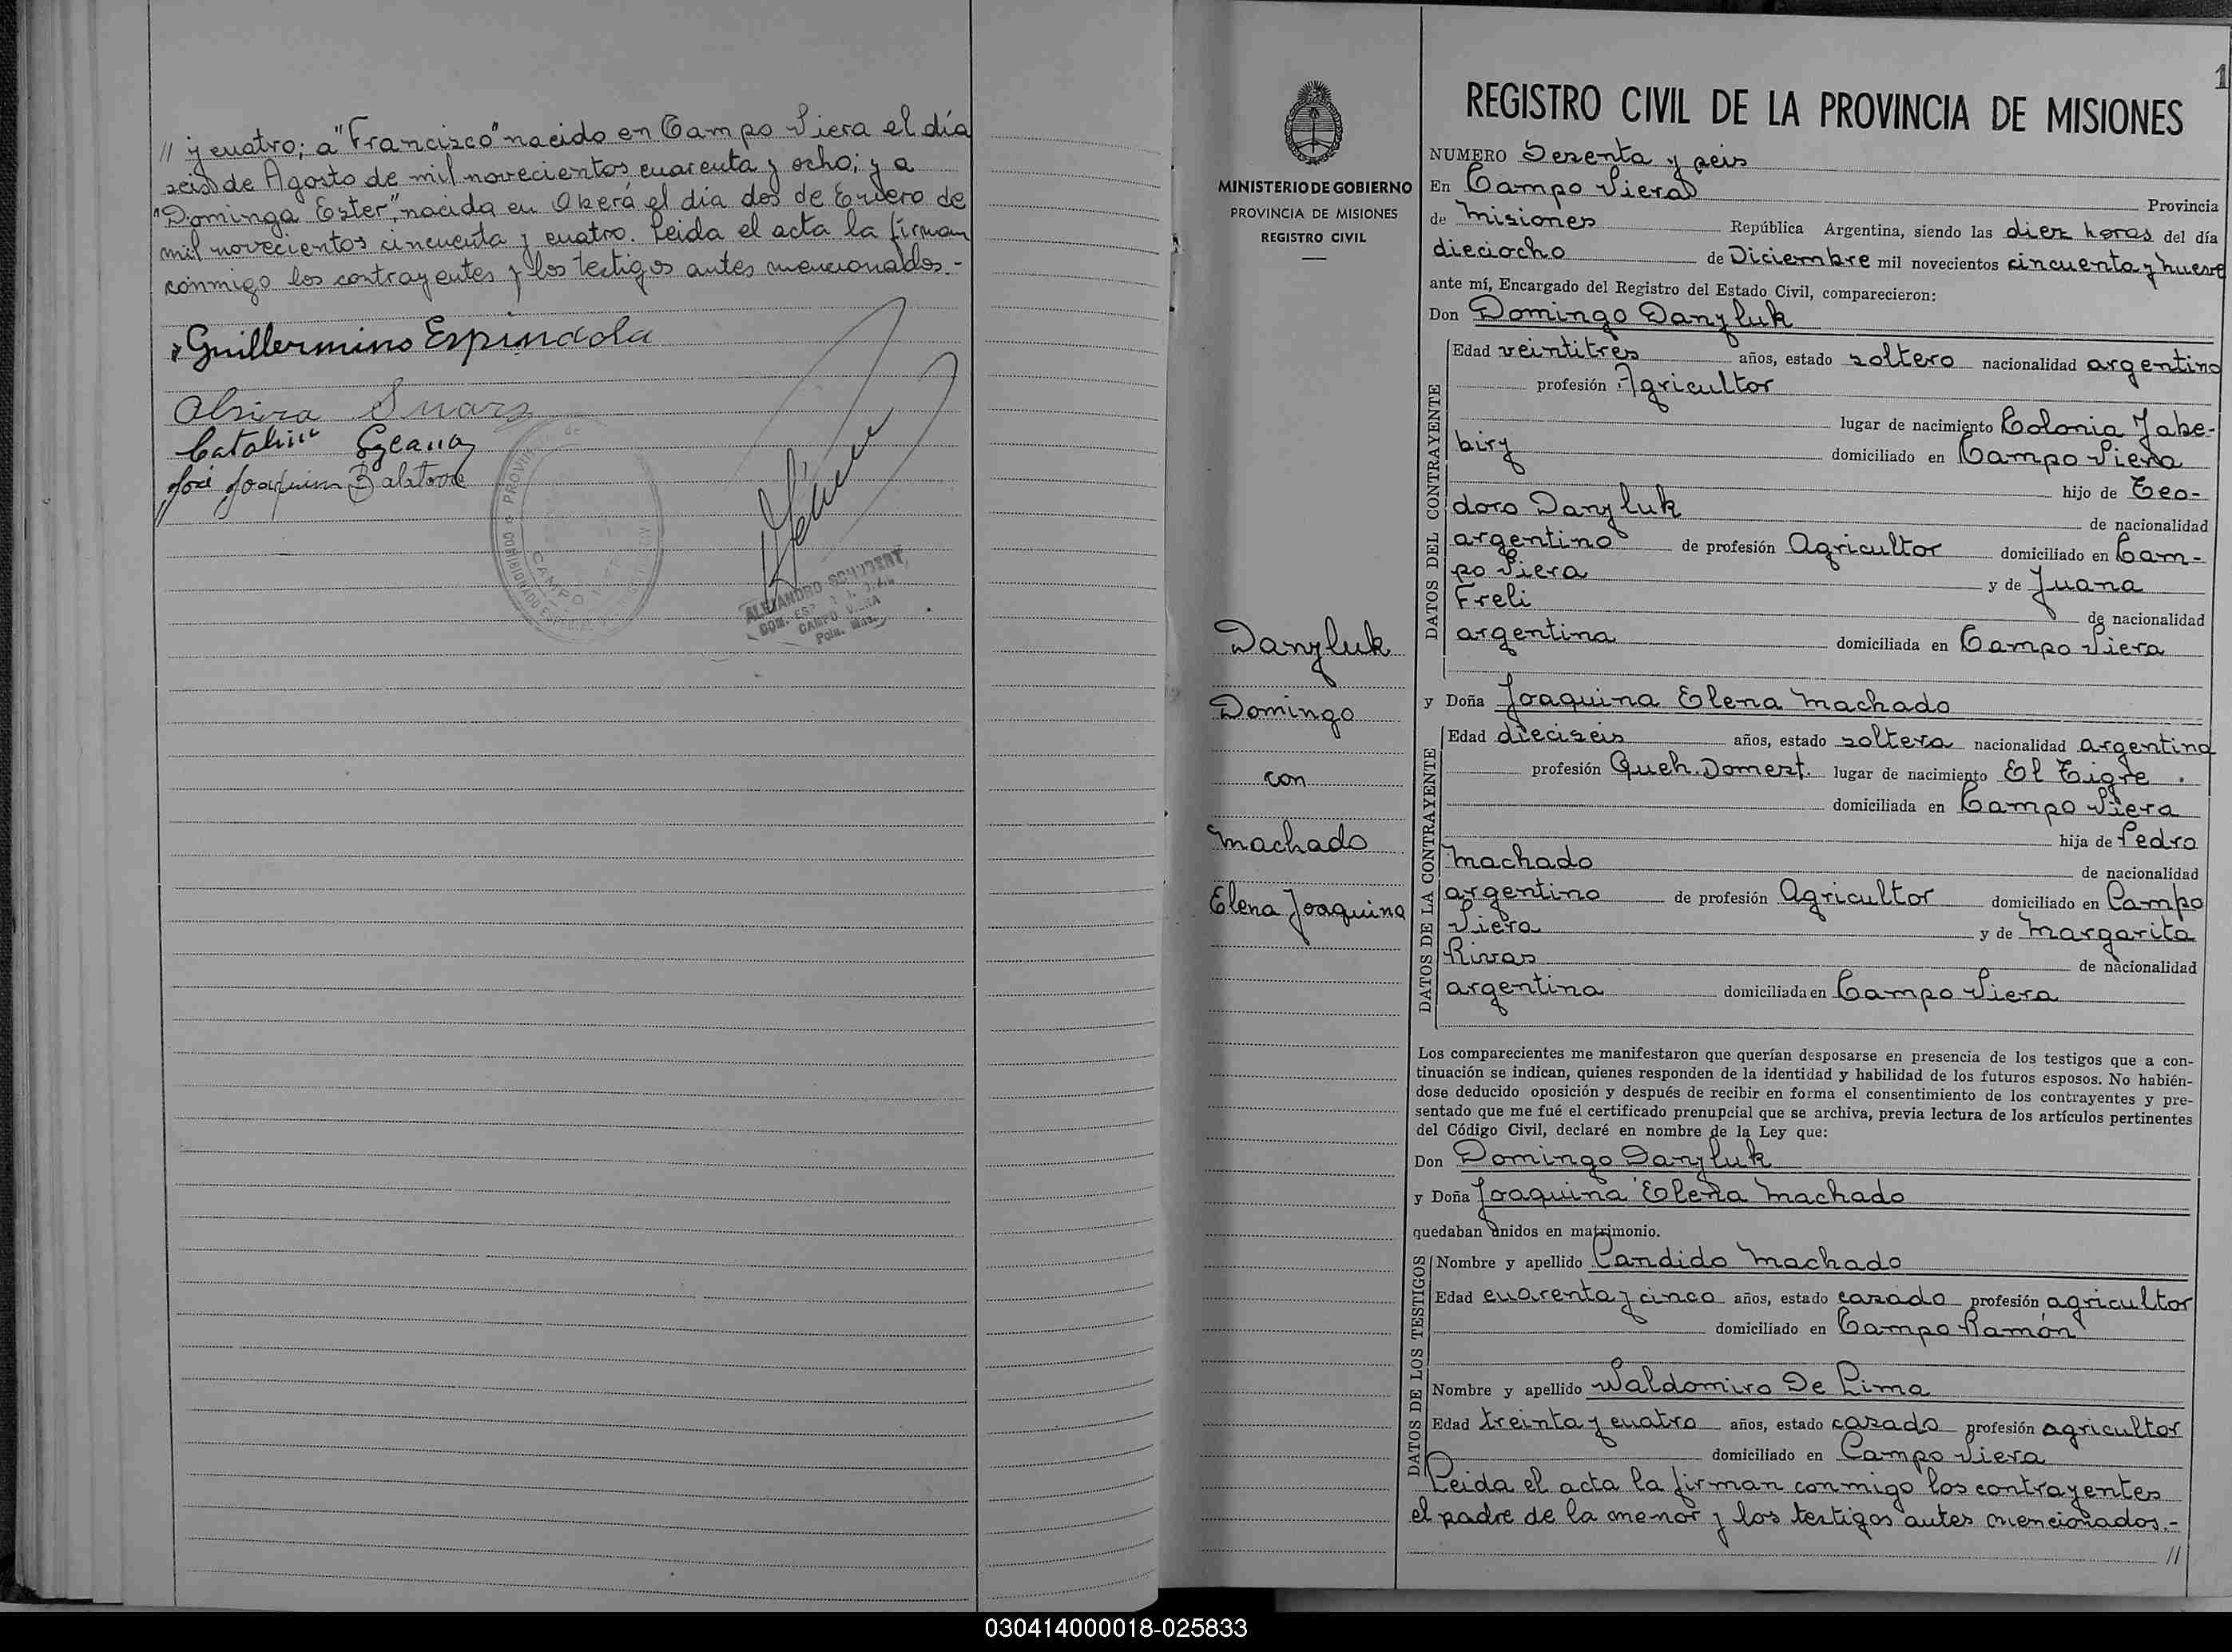 // y cuatro; a "Francisco" nacido en Campo Viera el día
seis de Agosto de mil novecientos cuarenta y ocho; y a
"Dominga Ester", nacida en Oberá el día dos de Enero de
mil novecientos cincuenta y cuatro. Leida el acta la firman
conmigo los contrayentes y los testigos antes mencionados.-
Guillermino Espindola
Alsira Suarz
José Joaquim Balatore
CAMPO
ALEJANDRO SCHUBERT
CAMPO VIERA
MINISTERIO DE GOBIERNO
PROVINCIA DE MISIONES
REGISTRO CIVIL
Danyluk
Domingo
con
Machado
Elena Joaquina
1
REGISTRO CIVIL DE LA PROVINCIA DE MISIONES
NUMERO Sesenta y seis
En Campo Viera Provincia
de Misiones República Argentina, siendo las diez horas del día
dieciocho de Diciembre mil novecientos cincuenta y nueve
ante mí, Encargado del Registro del Estado Civil, comparecieron:
Don Domingo Danyluk
DATOS DEL CONTRAYENTE
Edad veintitres años, estado soltero nacionalidad argentino
profesión Agricultor
lugar de nacimiento Colonia Yabe-
biry domiciliado en Campo Viera
hijo de Teo-
doro Danyluk de nacionalidad
argentino de profesión Agricultor domiciliado en Cam-
po Viera y de Juana
Freli de nacionalidad
argentina domiciliada en Campo Viera
y Doña Joaquina Elena Machado
DATOS DE LA CONTRAYENTE
Edad dieciseis años, estado soltera nacionalidad argentina
profesión Queh. Domest. lugar de nacimiento El Tigre
domiciliada en Campo Viera
hija de Pedro
Machado de nacionalidad
argentino de profesión Agricultor domiciliado en Campo
Viera y de Margarita
Rivas de nacionalidad
argentina domiciliada en Campo Viera
Los comparecientes me manifestaron que querían desposarse en presencia de los testigos que a con-
tinuación se indican, quienes responden de la identidad y habilidad de los futuros esposos. No habién-
dose deducido oposición y después de recibir en forma el consentimiento de los contrayentes y pre-
sentado que me fué el certificado prenupcial que se archiva, previa lectura de los artículos pertinentes
del Código Civil, declaré en nombre de la Ley que:
Don Domingo Danyluk
y Doña Joaquina Elena Machado
quedaban unidos en matrimonio.
DATOS DE LOS TESTIGOS
Nombre y apellido Candido Machado
Edad cuarenta y cinco años, estado casado profesión agricultor
domiciliado en Campo Ramón
Nombre y apellido Waldomiro De Lima
Edad treinta y cuatro años, estado casado profesión agricultor
domiciliado en Campo Viera
Leida el acta la firman conmigo los contrayentes
el padre de la menor y los testigos antes mencionados.-
//
030414000018-025833